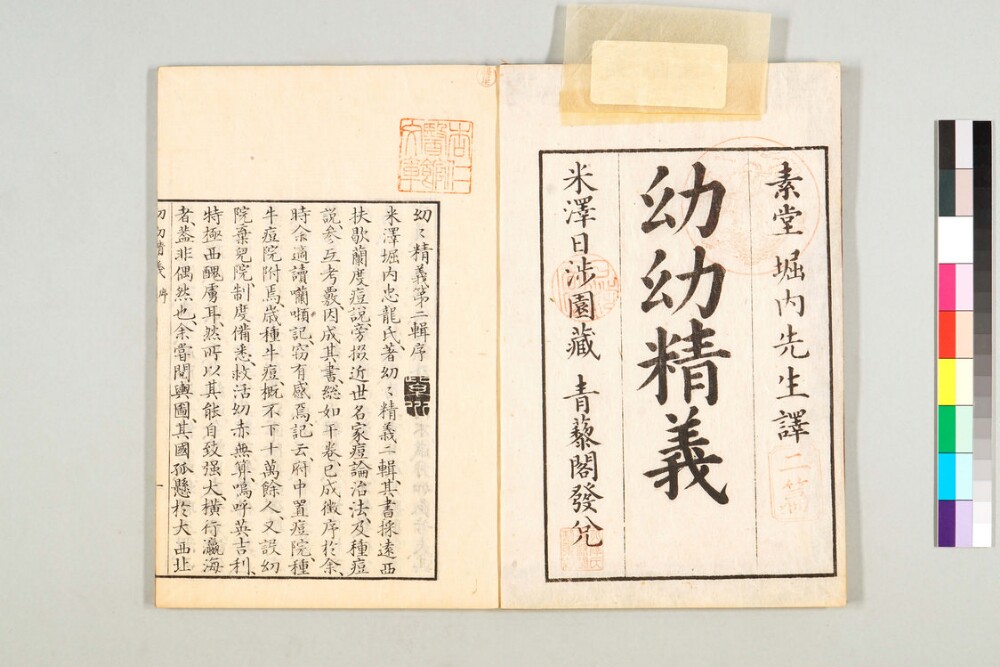 素堂堀内先生譯
二篇
幼幼精義
米澤日渉園藏 青藜閣發兌
杏仁醫館文庫
幼〻精義第二輯序
米澤堀内忠龍氏、著幼〻精義二輯、其書採遠西
扶歇蘭度痘說、旁掇近世名家痘論治法、及種痘
說、参互考覈、因成其書、總如干卷、已成徵序於余、
時余適讀嘞頓記、窃有感焉、記云、府中置痘院、種
牛痘院附焉、歳種牛痘、概不下十萬餘人、又設幼
院棄兒院、制度備悉、救活幼赤無算、嗚呼英吉利、
特極西醜虜耳、然所以其能自致强大、橫行瀛海
者、蓋非偶然也、余嘗閱輿圖、其國孤懸於大西北
幼幼精義 序